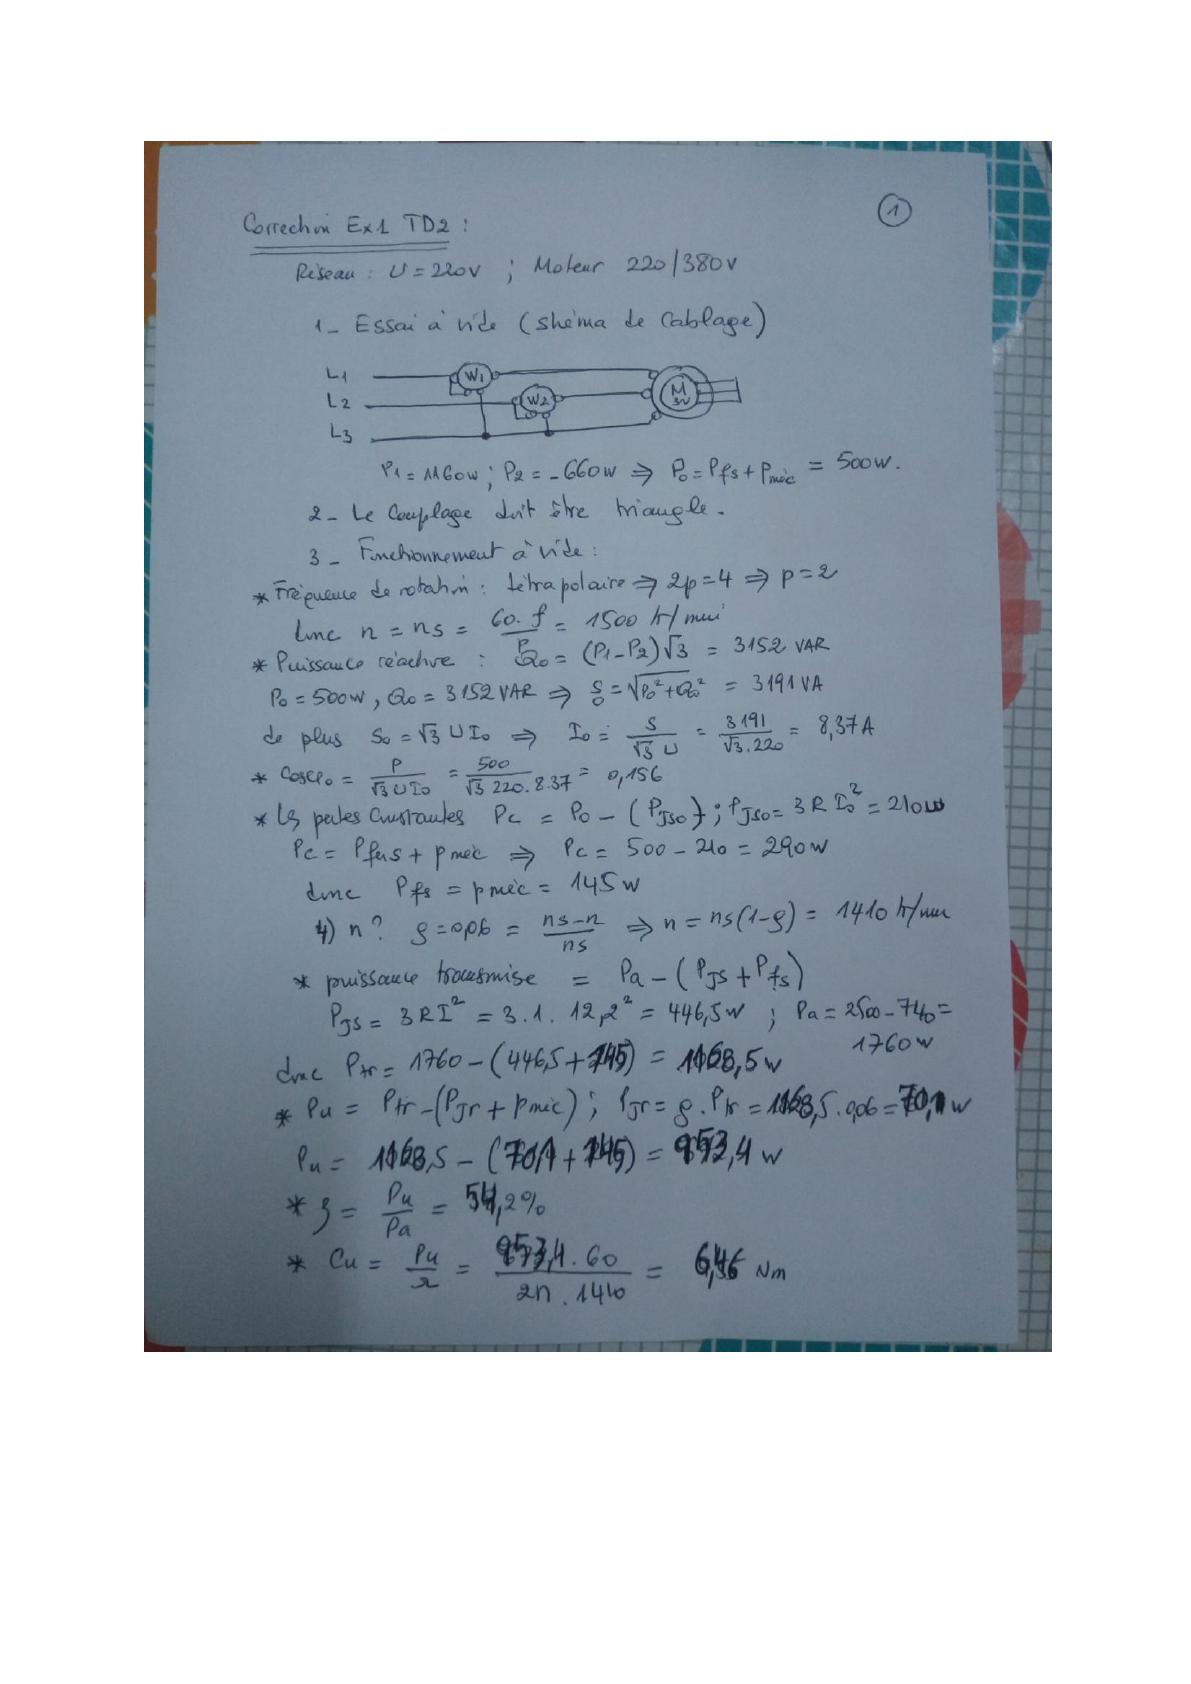 1
Correction Ex1 TD2 :
Réseau : U = 220V ; Moteur 220/380V
1- Essai à vide (shéma de cablage)
L1 W1
L2 W2 M 3~
L3
P1 = 1160W ; P2 = -660W ⇒ P0 = Pfs + Pméc = 500W.
2- Le Couplage doit être triangle.
3- Fonctionnement à vide :
* Fréquence de rotation : tétrapolaire ⇒ 2p = 4 ⇒ p = 2
donc n = ns = 60.f / P = 1500 tr/min
* Puissance réactive : Q0 = (P1-P2)√3 = 3152 VAR
P0 = 500W, Q0 = 3152 VAR ⇒ S0 = √P0²+Q0² = 3191 VA
de plus S0 = √3 U I0 ⇒ I0 = S / √3 U = 3191 / √3.220 = 8,37A
* Cosφ0 = P / √3 U I0 = 500 / √3 220.8.37 = 0,156
* Ls pertes Constantes Pc = P0 - (PJS0) ; PJS0 = 3 R I0² = 210W
Pc = Pfers + pméc ⇒ Pc = 500 - 210 = 290W
donc Pfs = pméc = 145W
4) n? g = 0,06 = ns-n / ns ⇒ n = ns(1-g) = 1410 tr/min
* puissance transmise = Pa - (PJS + Pfs)
PJS = 3RI² = 3.1.12,2² = 446,5W ; Pa = 2500 - 740 =
1760W
donc Ptr = 1760 - (446,5 + 145) = 1168,5W
* Pu = Ptr - (PJr + pméc) ; PJr = g.Ptr = 1168,5.0,06 = 70,1W
Pu = 1168,5 - (70,1 + 145) = 953,4W
* η = Pu / Pa = 54,2%
* Cu = Pu / Ω = 953,4.60 / 2π.1410 = Nm